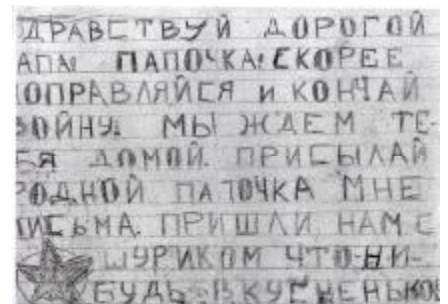 ДРАВСТВУЙ ДОРОГОЙ
АПА! ПАПОЧКА! СКОРЕЕ
ОПРАВЛЯЙСЯ И КОНЧАЙ
ВОЙНУ! МЫ ЖДЕМ ТЕ-
БЯ ДОМОЙ. ПРИСЫЛАЙ
РОДНОЙ ПАПОЧКА МНЕ
ПИСЬМА. ПРИШЛИ НАМ С
ШУРИКОМ ЧТО-НИ-
БУДЬ ВКУСНЕНЬКОЕ